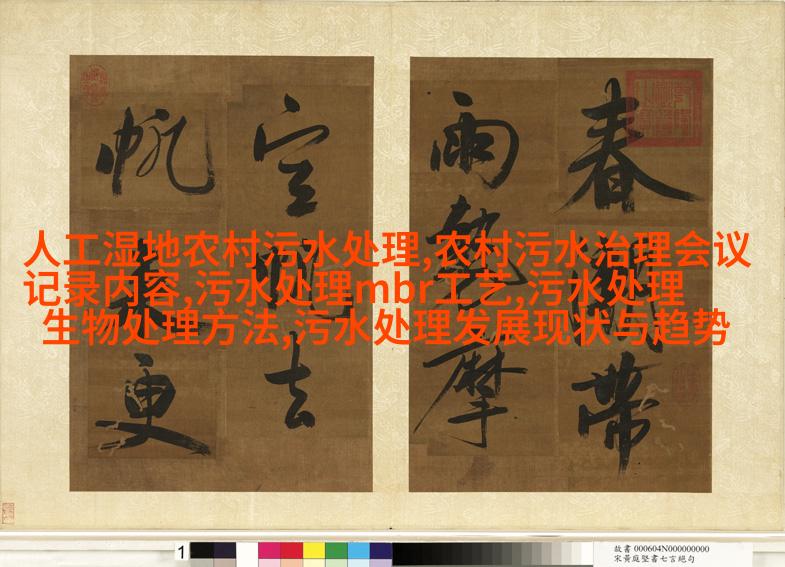 人工湿地农村污水处理,农村污水治理会议
记录内容,污水处理mbr工艺,污水处理
生物处理方法,污水处理发展现状与趋势
春潮帶
雨勢摩
空去
帆更
1
故書 000604N000000000
宋黃庭堅書七言絕句